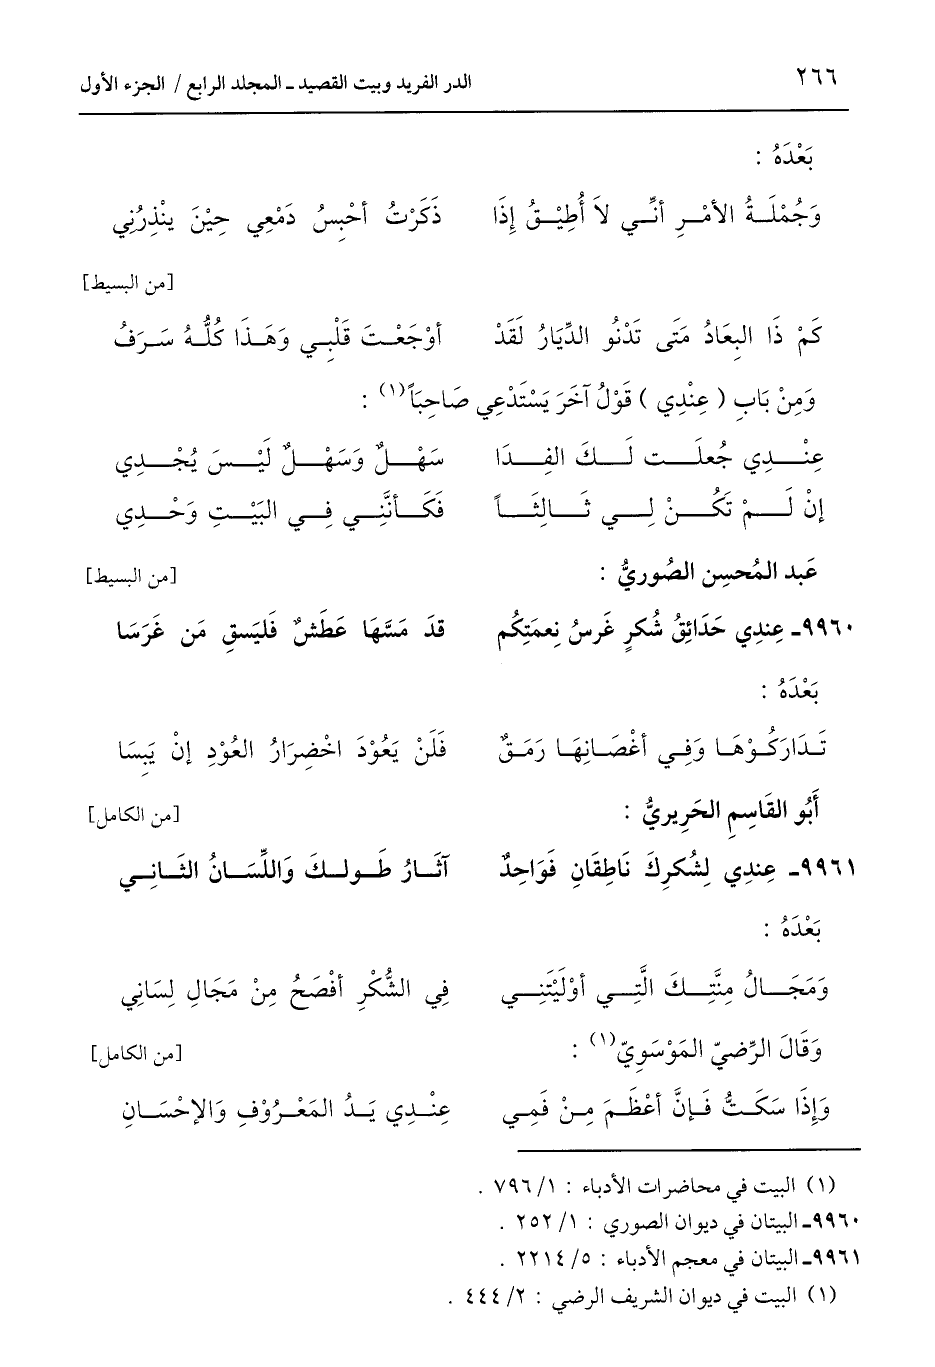 ٢٦٦ الدر الفريد وبيت القصيد ـ المجلد الرابع / الجزء الأول
بَعْدَهُ :
وَجُمْلَةُ الأمْرِ أنِّي لاَ أُطِيْقُ إِذَا ذَكَرْتُ أحْبِسُ دَمْعِي حِيْنَ ينْذِرُنِي
[من البسيط]
كَمْ ذَا البِعَادُ مَتَى تَدْنُو الدِّيَارُ لَقَدْ أوْجَعْتَ قَلْبِي وَهَذَا كُلُّهُ سَرَفُ
وَمِنْ بَابِ ( عِنْدِي ) قَوْلُ آخَرَ يَسْتَدْعِي صَاحِبَاً(١) :
عِنْدِي جُعلَت لَكَ الفِدَا سَهْلٌ وَسَهْلٌ لَيْسَ يُجْدِي
إنْ لَمْ تَكُنْ لِي ثَالِثَاً فَكَأنَّنِي فِي البَيْتِ وَحْدِي
عَبد المُحسِن الصُوريُّ : [من البسيط]
٩٩٦٠ـ عِندِي حَدَائِقُ شُكرٍ غَرسُ نِعمَتِكُم قدَ مَسَّهَا عَطَشٌ فَليَسقِ مَن غَرَسَا
بَعْدَهُ :
تَدَارَكُوْهَا وَفِي أغْصَانِهَا رَمَقٌ فَلَنْ يَعُوْدَ اخْضِرَارُ العُوْدِ إنْ يَبِسَا
أَبُو القَاسِمِ الحَرِيريُّ : [من الكامل]
٩٩٦١ـ عِندِي لِشُكرِكَ نَاطِقَانِ فَوَاحِدٌ آثَارُ طَولِكَ وَاللِّسَانُ الثَانِي
بَعْدَهُ :
وَمَجَالُ مِنَّتِكَ الَّتِي أوْلَيْتَنِي فِي الشُّكْرِ أفْصَحُ مِنْ مَجَالِ لِسَانِي
وَقَالَ الرِّضيّ المَوْسَوِيّ(١) : [من الكامل]
وَإِذَا سَكَتُّ فَإِنَّ أعْظَمَ مِنْ فَمِي عِنْدِي يَدُ المَعْرُوْفِ وَالإحْسَانِ
(١) البيت في محاضرات الأدباء : ١/ ٧٩٦ .
٩٩٦٠ـ البيتان في ديوان الصوري : ١/ ٢٥٢ .
٩٩٦١ـ البيتان في معجم الأدباء : ٥/ ٢٢١٤ .
(١) البيت في ديوان الشريف الرضي : ٢/ ٤٤٤ .